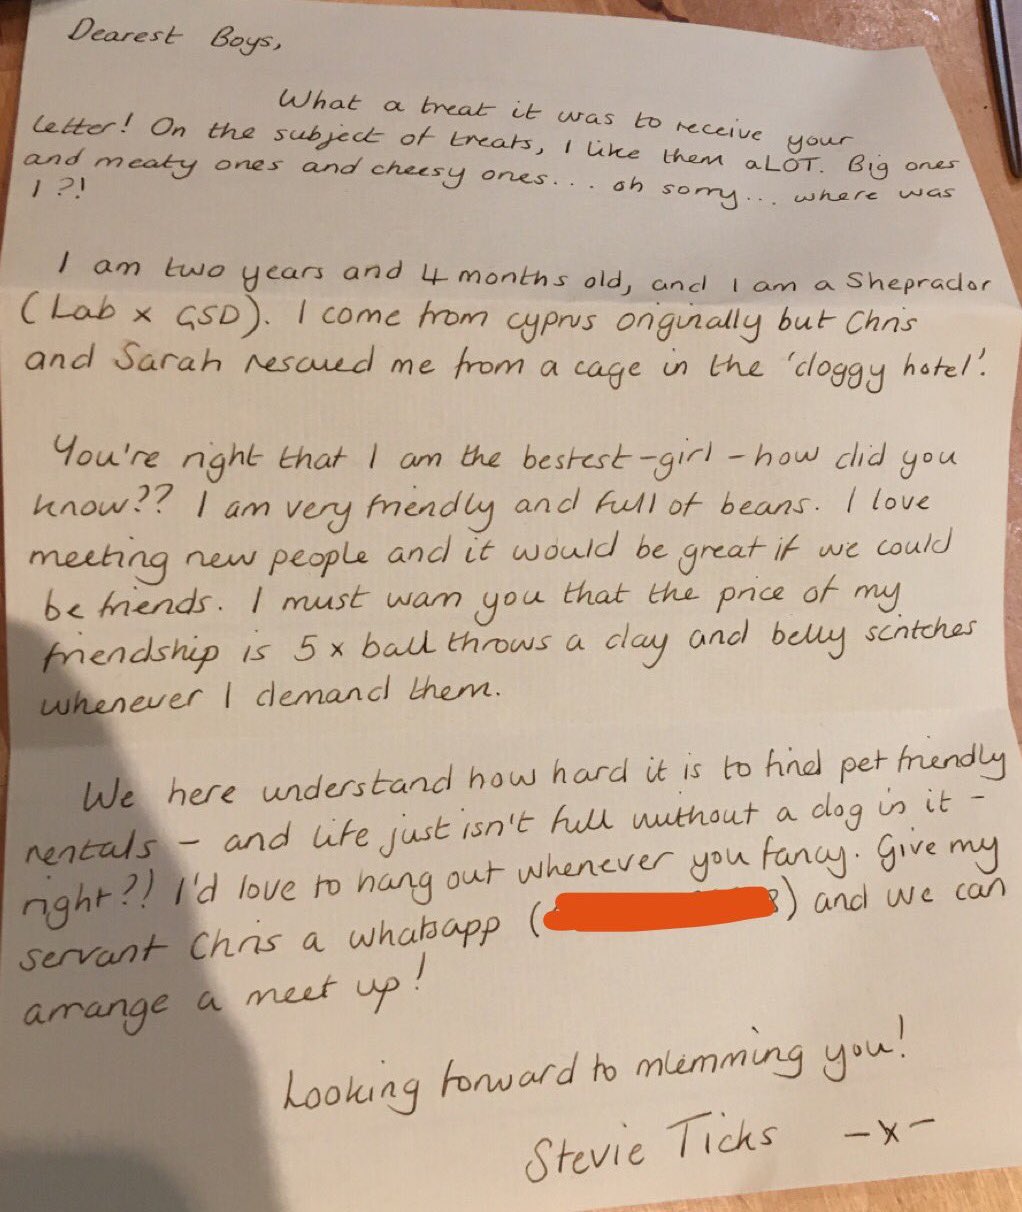 Dearest Boys,
What a treat it was to receive your
letter! On the subject of treats, I like them aLOT. Big ones
and meaty ones and cheesy ones... oh sorry... where was
I?!
I am two years and 4 months old, and I am a Sheprador
(Lab x GSD). I come from cyprus originally but Chris
and Sarah rescued me from a cage in the 'doggy hotel'.
You're right that I am the bestest-girl - how did you
know?? I am very friendly and full of beans. I love
meeting new people and it would be great if we could
be friends. I must warn you that the price of my
friendship is 5 x ball throws a day and belly scritches
whenever I demand them.
We here understand how hard it is to find pet friendly
rentals - and life just isn't full without a dog in it -
right?!) I'd love to hang out whenever you fancy. Give my
servant Chris a whatsapp (8) and we can
arrange a meet up!
Looking forward to mlemming you!
Stevie Ticks -x-